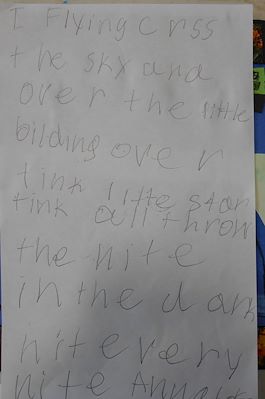 I Flying crss
the sky and
over the little
bilding over
tink litte star
tink all throw
the nite
in the dark
nite very
nite